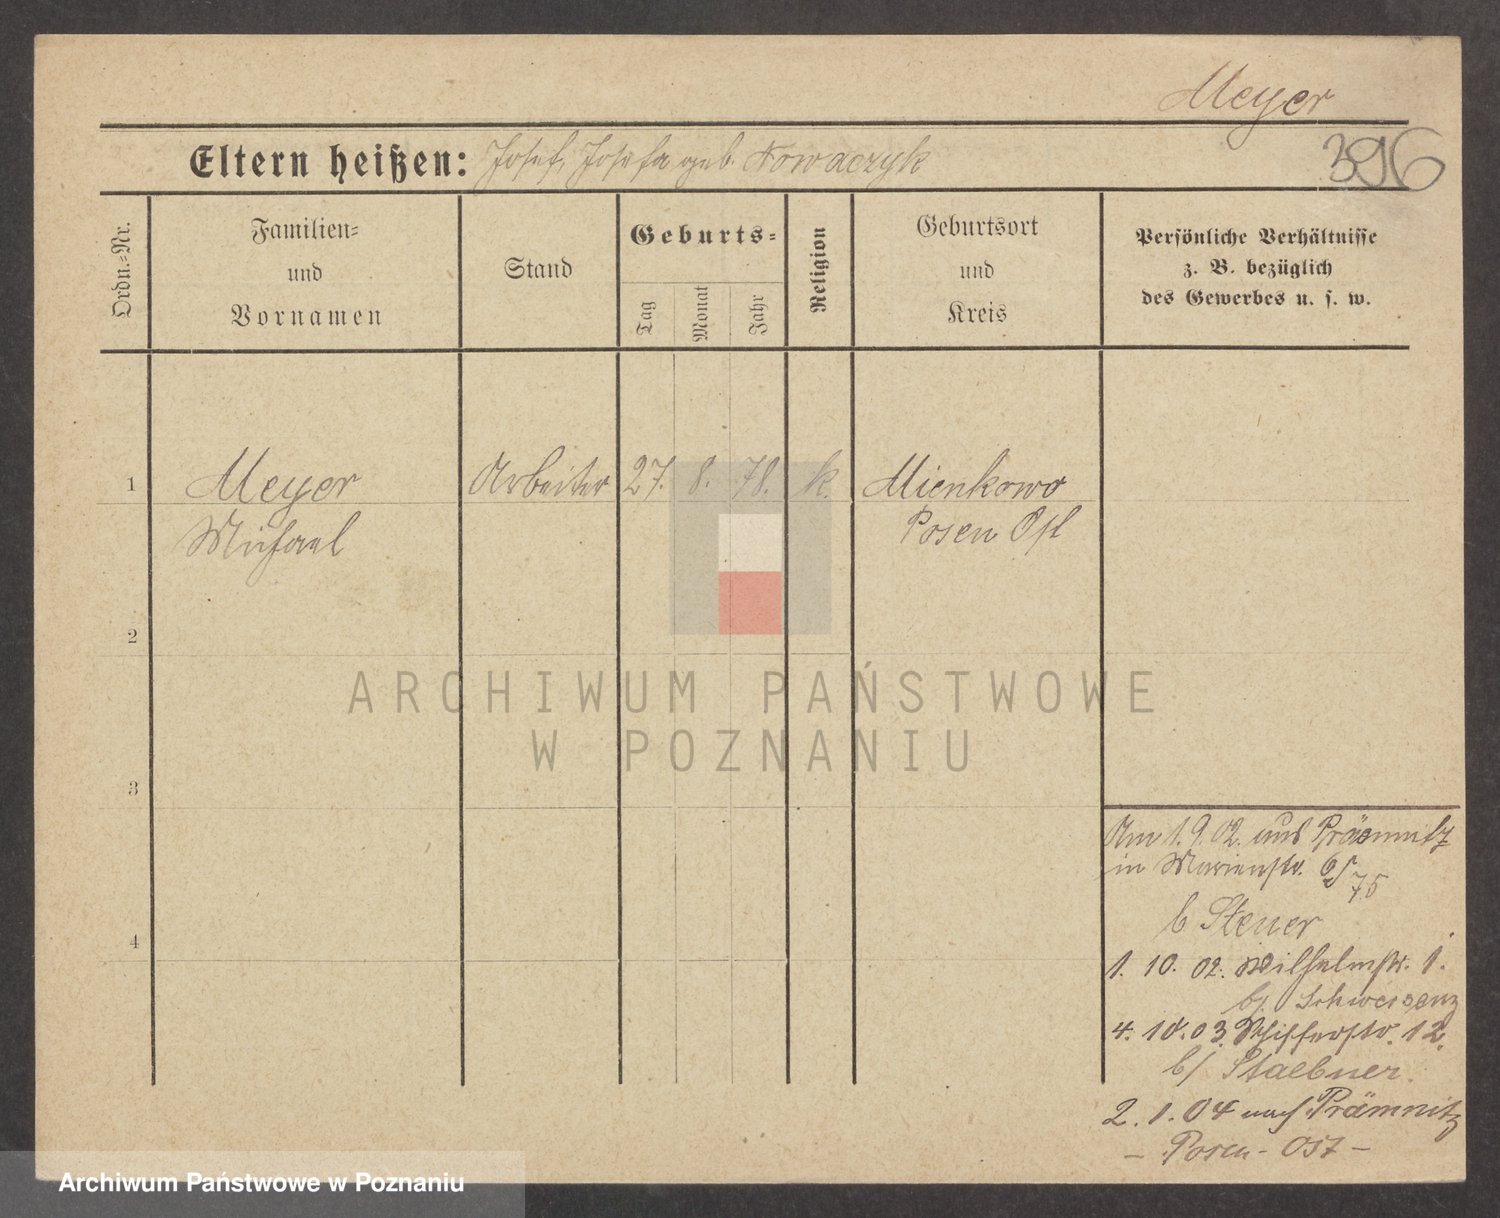 Meyer
396
Eltern heißen: Josef, Josefa geb. Nowaczyk
Ordn.-Nr.
Familien-
und
Vornamen
Stand
Geburts-
Tag
Monat
Jahr
Religion
Geburtsort
und
Kreis
Persönliche Verhältnisse
z. B. bezüglich
des Gewerbes u. s. w.
1
Meyer
Michael
Arbeiter
27.
8.
78.
k.
Mienkowo
Posen Ost
2
3
4
Am 1.9.02. aus Prämnitz
in Marienstr. 75
b Steuer
1. 10. 02. Wilhelmstr. 1.
b/ Schwersenz
4. 10.03. Schifferstr. 12.
b/ Staebner.
2. 1. 04 nach Prämnitz
– Posen-Ost –
ARCHIWUM PAŃSTWOWE
W POZNANIU
Archiwum Państwowe w Poznaniu